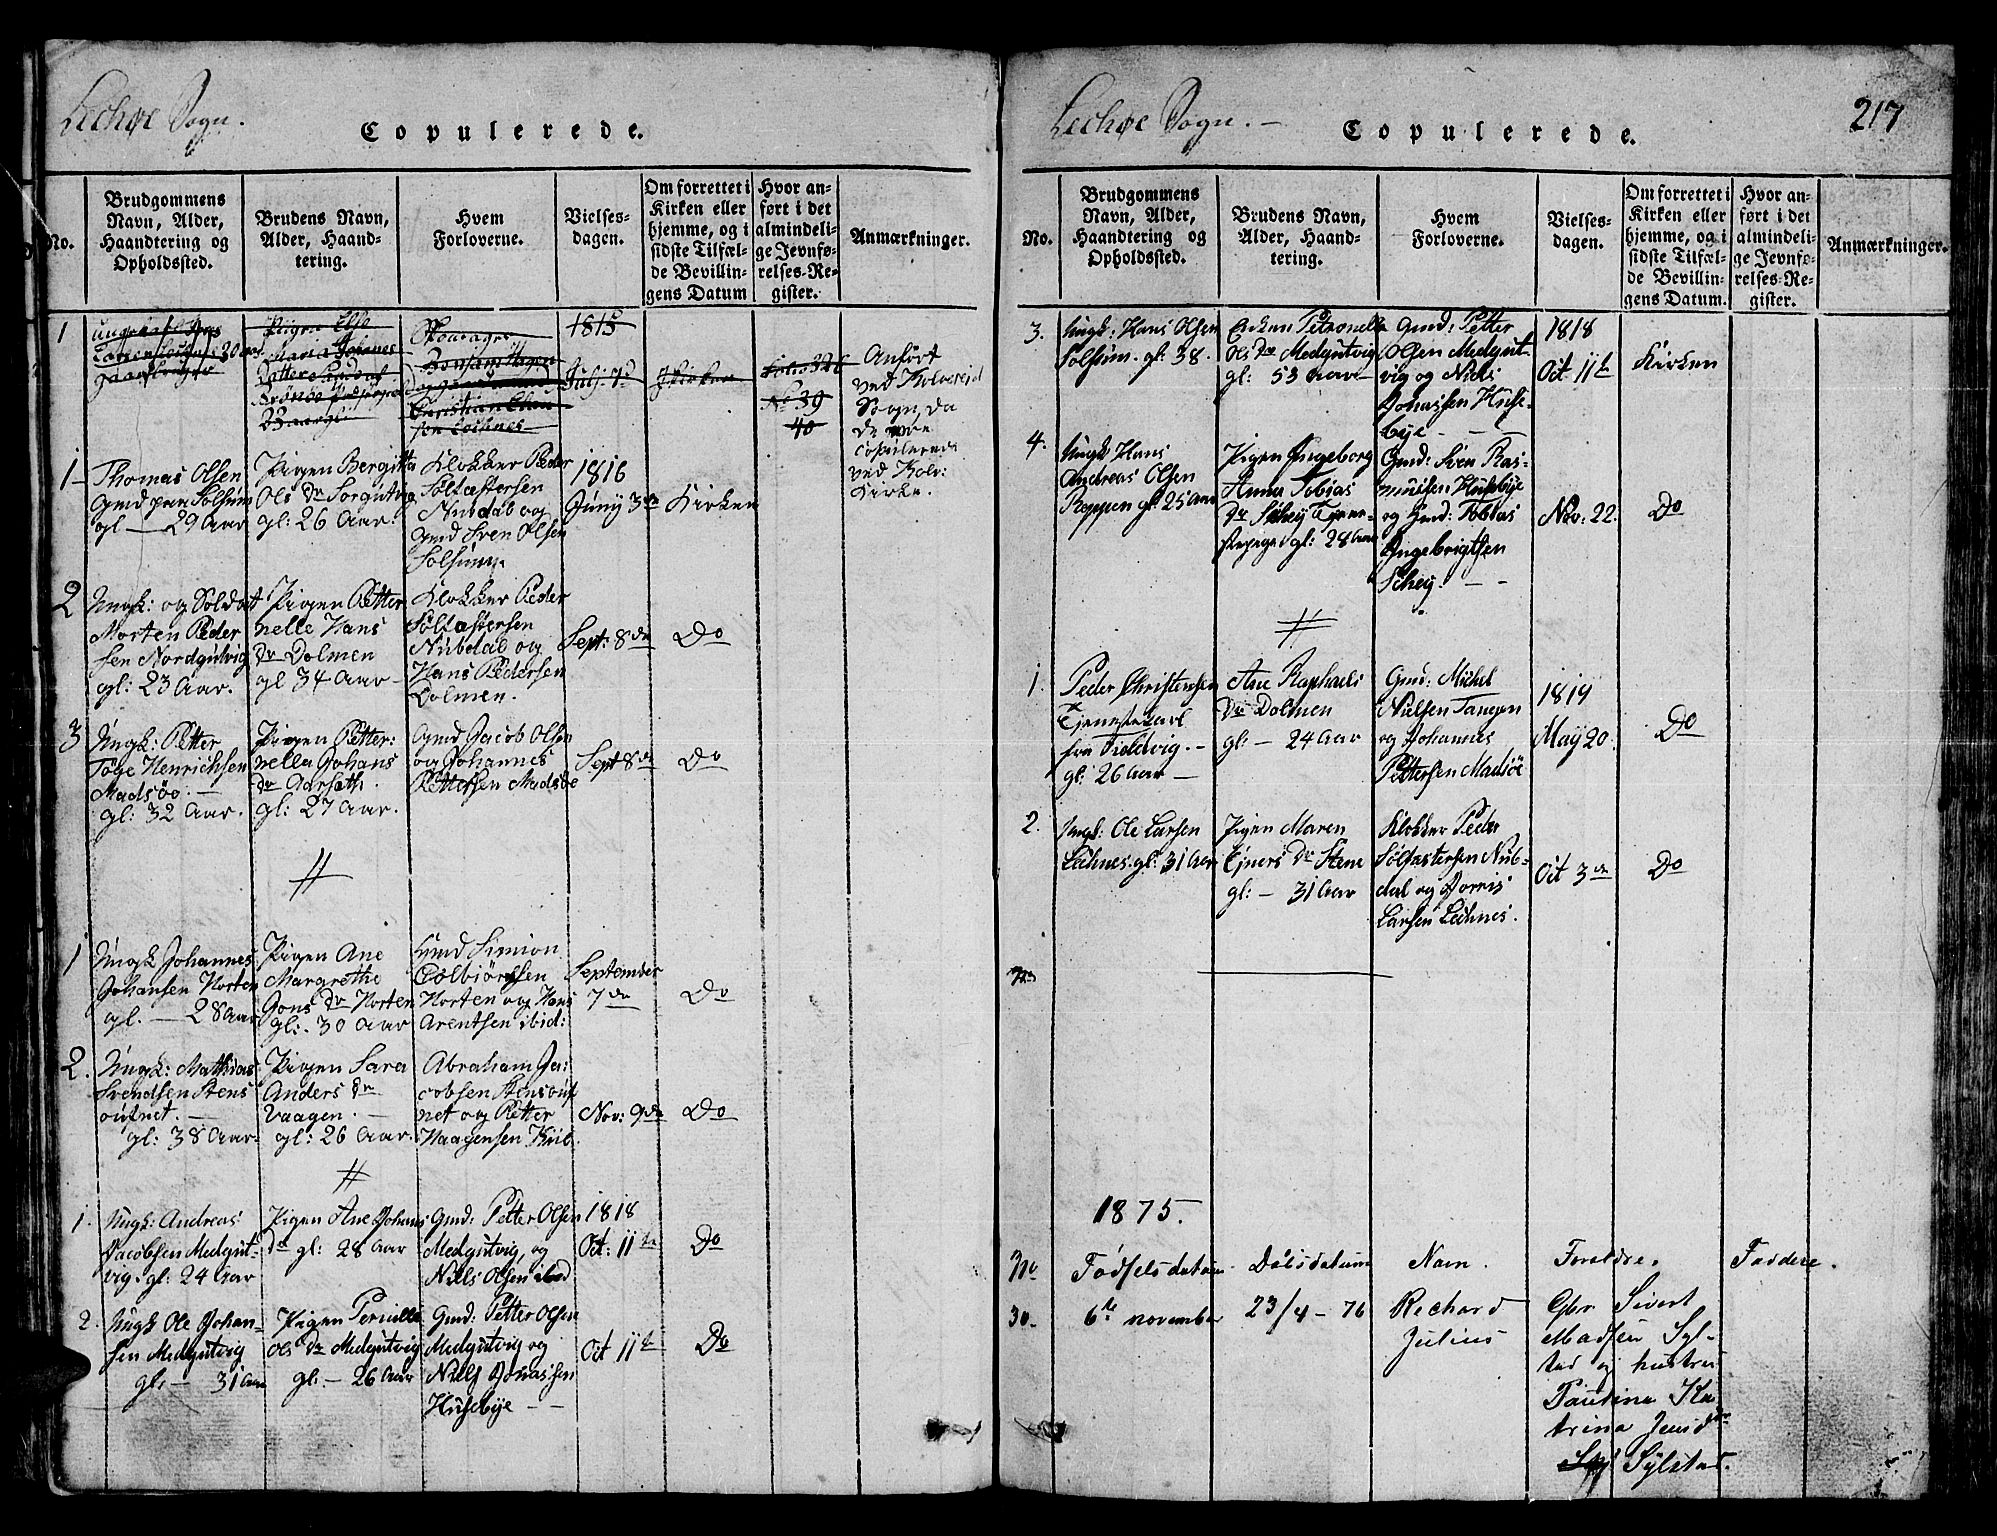 Lechøe Sogn.
Copulerede.
No.
Brudgommens
Navn, Alder,
Haandtering og
Opholdssted.
Brudens Navn,
Alder, Haand-
tering.
Hvem
Forloverne.
Vielses-
dagen.
Om forrettet i
Kirken eller
hjemme, og i
sidste Tilfæl-
de Bevillin-
gens Datum
Hvor an-
ført i det
almindeli-
ge Jevnfø-
relses-Re-
gister.
Anmærkninger.
1
1815
Julj 9d
Kirken
No 39
40
Anført
ved Kolvereid
Sogn, da
de ere
copulerede
ved Kolv:
Kirke.
1
Thomas Olsen
Gmd paa Solsum
gl — 29 Aar
Pigen Bergitta
Ols Dr Sørgutvig
gl: 26 Aar.
Klokker Peder
Søltæstersen
Nubdal og
Gmd Sven Olsen
Solsum
1816
Juny 3de
Kirken
2
Ungk: og Soldat
Morten Peder
sen Nordgutvig
gl: 23 Aar.
Pigen Petter
nelle Hans
Dr Dolmen
gl 34 Aar
Klokker Peder
Søltæstersen
Nubdal og
Hans Pedersen
Dolmen.
Sept: 8de
Do
3
Ungk: Petter
Tøge Henrichsen
Madsøe. —
gl: 32 Aar.
Pigen Petter:
nella Johans
Dr Aarseth
gl: 27 Aar.
Gmd Jacob Olsen
og Johannes
Pettersen Madsøe
Sept 8de
Do
//
1
Ungk Johannes
Johansen Horten
gl. — 28 Aar
Pigen Ane
Margrethe
Jons Dr Horten
gl:. 30 Aar
Gmd Simion
Colbjørnsen
Horten og Hans
Arentsen ibid:
September
7de
Do
2.
Ungk: Mathias
Svendsen Stens
oufnet. —
gl: 38 Aar-
Pigen Sara
Anders Dr
Vaagen. —
gl: 26 Aar.
Abraham Ja-
cobsen Stensouf
net og Petter
Haagensen Kvib.
Nov: 9de
Do
//
1.
Ungk: Andreas
Jacobsen Medgut-
vig. gl: 24 Aar
Pigen Ane Johans
Dr gl: 28 Aar
Gmd: Petter Olsen
Medgutvig, og
Niels Olsen ibid
1818
Oct: 11te
Do
2.
Ungk Ole Johan-
sen Medgutvig
gl: — 31 Aar
Pigen Pernille
Ols Dr Medgutvig
gl: — 26 Aar
Gmd: Petter Olsen
Medgutvig og
Niels Jonassen
Husebye — —
Oct 11te
Do
Lechøe Sogn. —
Copulerede.
217
No.
Brudgommens
Navn, Alder,
Haandtering og
Opholdssted.
Brudens Navn,
Alder, Haand-
tering.
Hvem
Forloverne.
Vielses-
dagen.
Om forrettet i
Kirken eller
hjemme, og i
sidste Tilfæl-
de Bevillin-
gens Datum.
Hvor an-
ført i det
almindeli-
ge Jevnfø-
relses-Re-
gister.
Anmærkninger.
3.
Ungk: Hans Olsen
Solsum. gl: 38.
Enken Petronelle
Ols Dr Medgutvig
gl: 53 Aar
Gmd: Petter
Olsen Medgut-
vig og Niels
Jonassen Huse-
bye — —
1818
Oct 11te
Kirken
4.
Ungk Hans
Andreas Olsen
Roppen gl: 25 Aar
Pigen Ingeborg
Anna Tobias
Dr Schey Tjene-
stepige gl: 28 Aar
Gmd: Sven Ras-
musen Husebye
og Gmd: Tobias
Ingebrigtsen
Schey. — -
Nov: 22.
Do
//
1.
Peder Christensen
Tjenestekarl
fra Fieldvig. —
gl: 26 Aar —
Ane Raphaels
Dr Dolmen
gl: — 24 Aar
Gmd: Michel
Nielsen Tangen
og Johannes
Pettersen Madsøe
1819
May 20.
Do
2.
Ungk: Ole Larsen
Lechnes. gl: 31 Aar
Pigen Maren
Ejners Dr Stene
gl: — 31 Aar
Klokker Peder
Søltæstersen Nub-
dal og Dorris
Larsen Lechnes.
Oct 3de
Do
1875.
No
Fødselsdatum.
Dåbsdatum
Navn.
Foreldre.
Faddere.
30.
6te november
23/4 - 76
Rechard
Julius
Gbr Sivert
Madsen Syl-
stad og hustru
Paulina Ka-
trina Jensdtr
Sylstad.